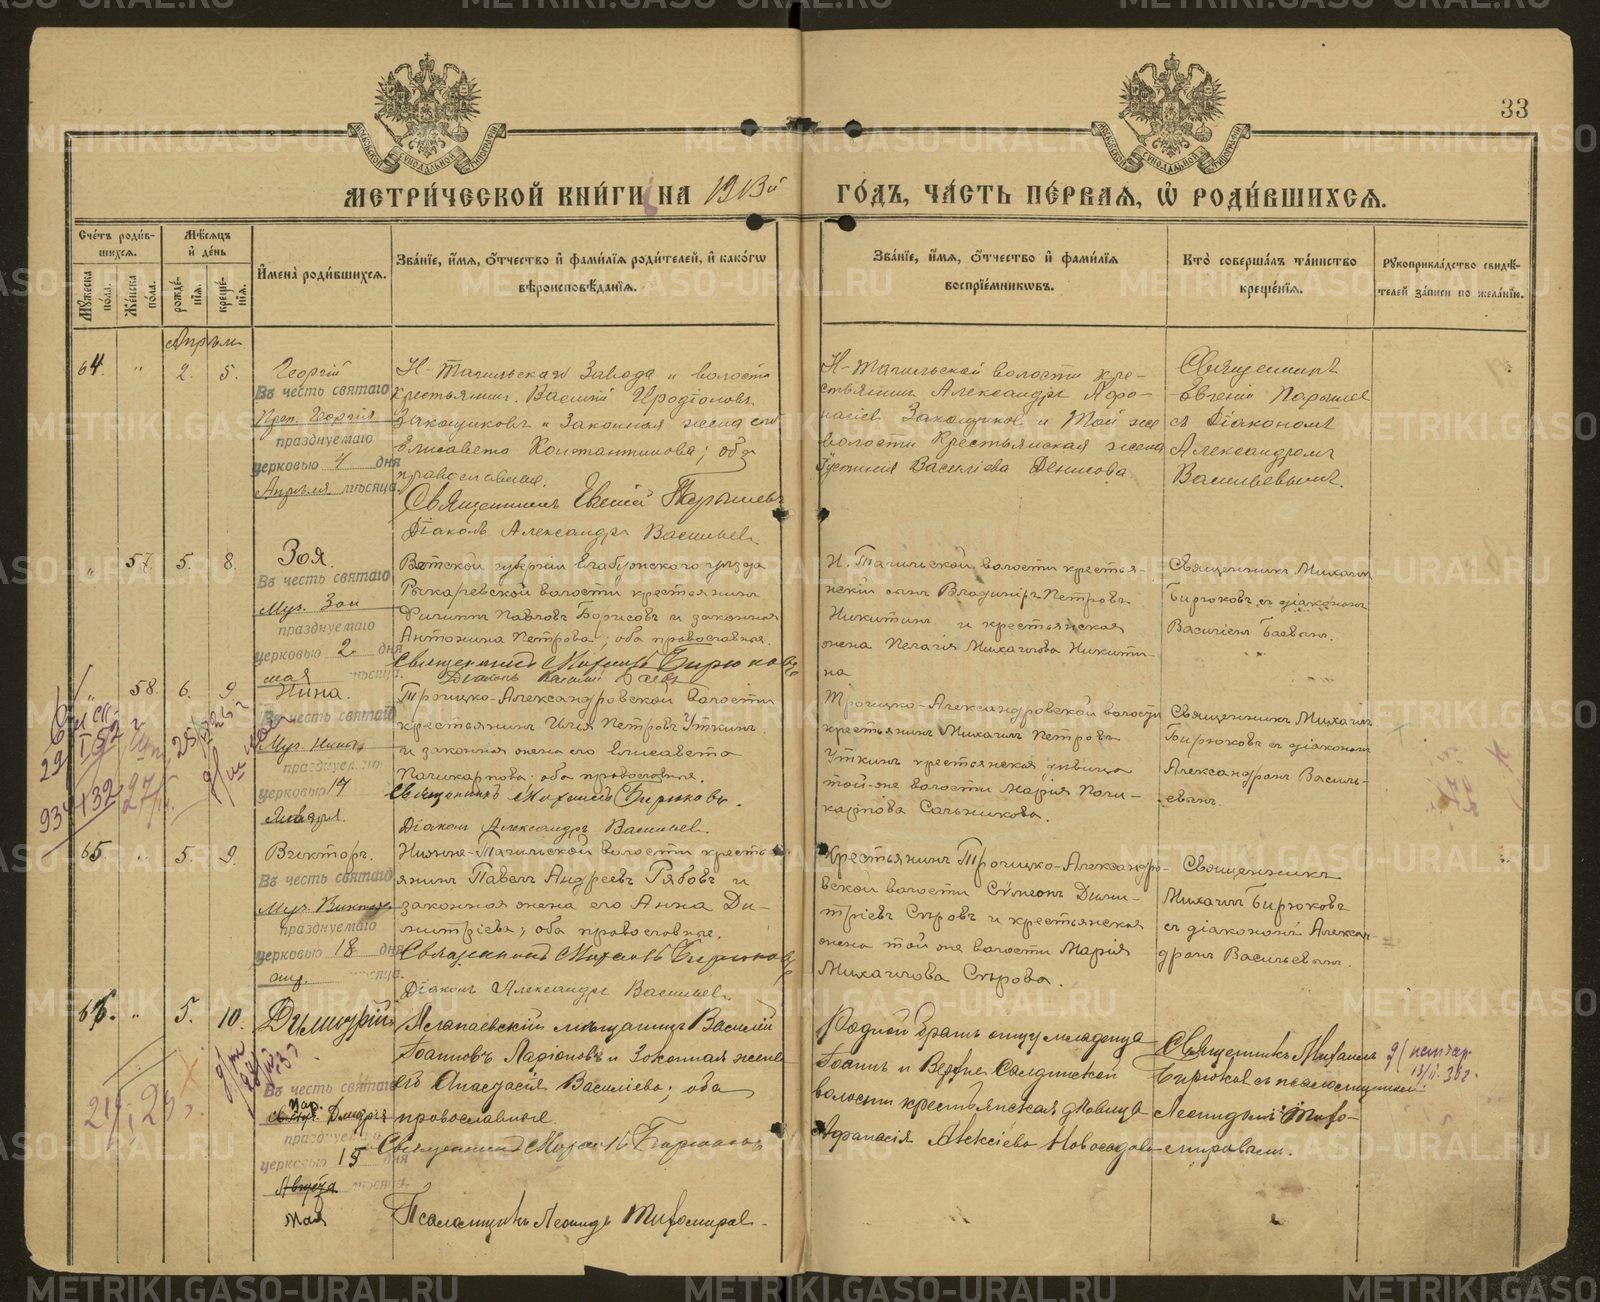 33
МЕТРИ́ЧЕСКОЙ КНИ́ГИ НА 1913й ГО́ДЪ, ЧА́СТЬ ПЕ́РВАЯ, Ѡ҆ РОДИ́ВШИХСЯ.
Сче́тъ роди́в-
шихся.
Мѣ́сяцъ
и҆ де́нь
Мꙋ́жеска по́ла.
Же́нска по́ла.
рожде́-
нїя.
креще́-
нїя.
И҆мена̀ роди́вшихся.
Зва́нїе, и҆́мя, ѻ҆́тчество и҆ фами́лїя роди́телей, и҆ како́гѡ
вѣроисповѣ́данїя.
Зва́нїе, и҆́мя, ѻ҆́тчество и҆ фами́лїя
воспрїе́мникѡвъ.
Кто̀ соверша́лъ та́инство
креще́нїя.
Рꙋкоприкла́дство свидѣ́-
телей за́писи по жела́нїю.
Апрѣль
64. " 2. 5.
Георгій
Въ честь святаго
Преп. Георгія
празднуемаго
церковью 4 дня
Апрѣля мѣсяца.
Н-Тагильскаго Завода и волости
крестьянинъ Василій Иродіоновъ
Закощиковъ и Законная жена его
Елисавета Константинова; оба
православные.
Священникъ Евгеній Парышевъ
Діаконъ Александръ Васильевъ
Н-Тагильской волости кре-
стьянинъ Александръ Афо-
насіевъ Закощиковъ и Той же
волости Крестьянская жена
Устинія Василіева Денисова
Священникъ
Евгеній Парышев
съ Діакономъ
Александромъ
Васильевымъ.
" 57. 5. 8.
Зоя.
Въ честь святаго
Муч. Зои
празднуемаго
церковью 2 дня
мая мѣсяца.
Вятской губерніи Елабужского уѣзда
волости крестьянинъ
Филиппъ Павловъ Борисовъ и законная
Антонина Петрова; оба православные.
Священникъ Михаилъ Бирюковъ
Діаконъ
Н. Тагильской волости крестья-
нскій сынъ Владиміръ Петровъ
Никитинъ и крестьянская
жена Пелагія Михаилова Никити-
на
Священникъ Михаилъ
Бирюковъ съ діакономъ
" 58. 6. 9.
Нина.
Въ честь святаго
Муч. Нины
празднуемаго
церковью 14
Января.
Троицко-Александровской волости
крестьянинъ Илія Петровъ Уткинъ
и законная жена его Елисавета
Поликарпова; оба православные.
Священникъ Михаилъ Бирюковъ.
Діаконъ Александръ Васильевъ.
Троицко-Александровской волости
крестьянинъ Михаилъ Петровъ
Уткинъ крестьянская дѣвица
той-же волости Марія Поли-
карпова Сальникова.
Священникъ Михаилъ
Бирюковъ съ діакономъ
Александромъ Василь-
евымъ.
65. " 5. 9.
Викторъ.
Въ честь святаго
Муч. Виктора
празднуемаго
церковью 18 дня
апр. мѣсяца.
Нижне-Тагильской волости кресть-
янинъ Павелъ Андреевъ Рябовъ и
законная жена его Анна Ди-
митріева; оба православные.
Священникъ Михаилъ Бирюковъ
Діаконъ Александръ Васильевъ
Крестьянинъ Троицко-Александро-
вской волости Сүмеонъ Дими-
тріевъ Сѣровъ и крестьянская
жена той же волости Марія
Михаилова Сѣрова.
Священникъ
Михаилъ Бирюковъ
съ діакономъ Алексан-
дромъ Васильевымъ.
66. " 5. 10.
Димитрій
Въ честь святаго
Цар. Димитрія
празднуемаго
церковью 15 дня
мѣсяца.
Мая
Алапаевскій мѣщанинъ Василій
Іоанновъ Ларіоновъ и Законная жена
его Анастасія Василіева; оба
православные
Священникъ Михаилъ Бирюковъ
Псаломщикъ Леонидъ Тихомировъ.
Родной братъ отцу младенца
Іоаннъ и Верхне Салдинской
волости крестьянская дѣвица
Афанасія Алексіева Новоселова
Священникъ Михаилъ
Бирюковъ съ псаломщикомъ
Леонидомъ Тихо-
мировымъ.